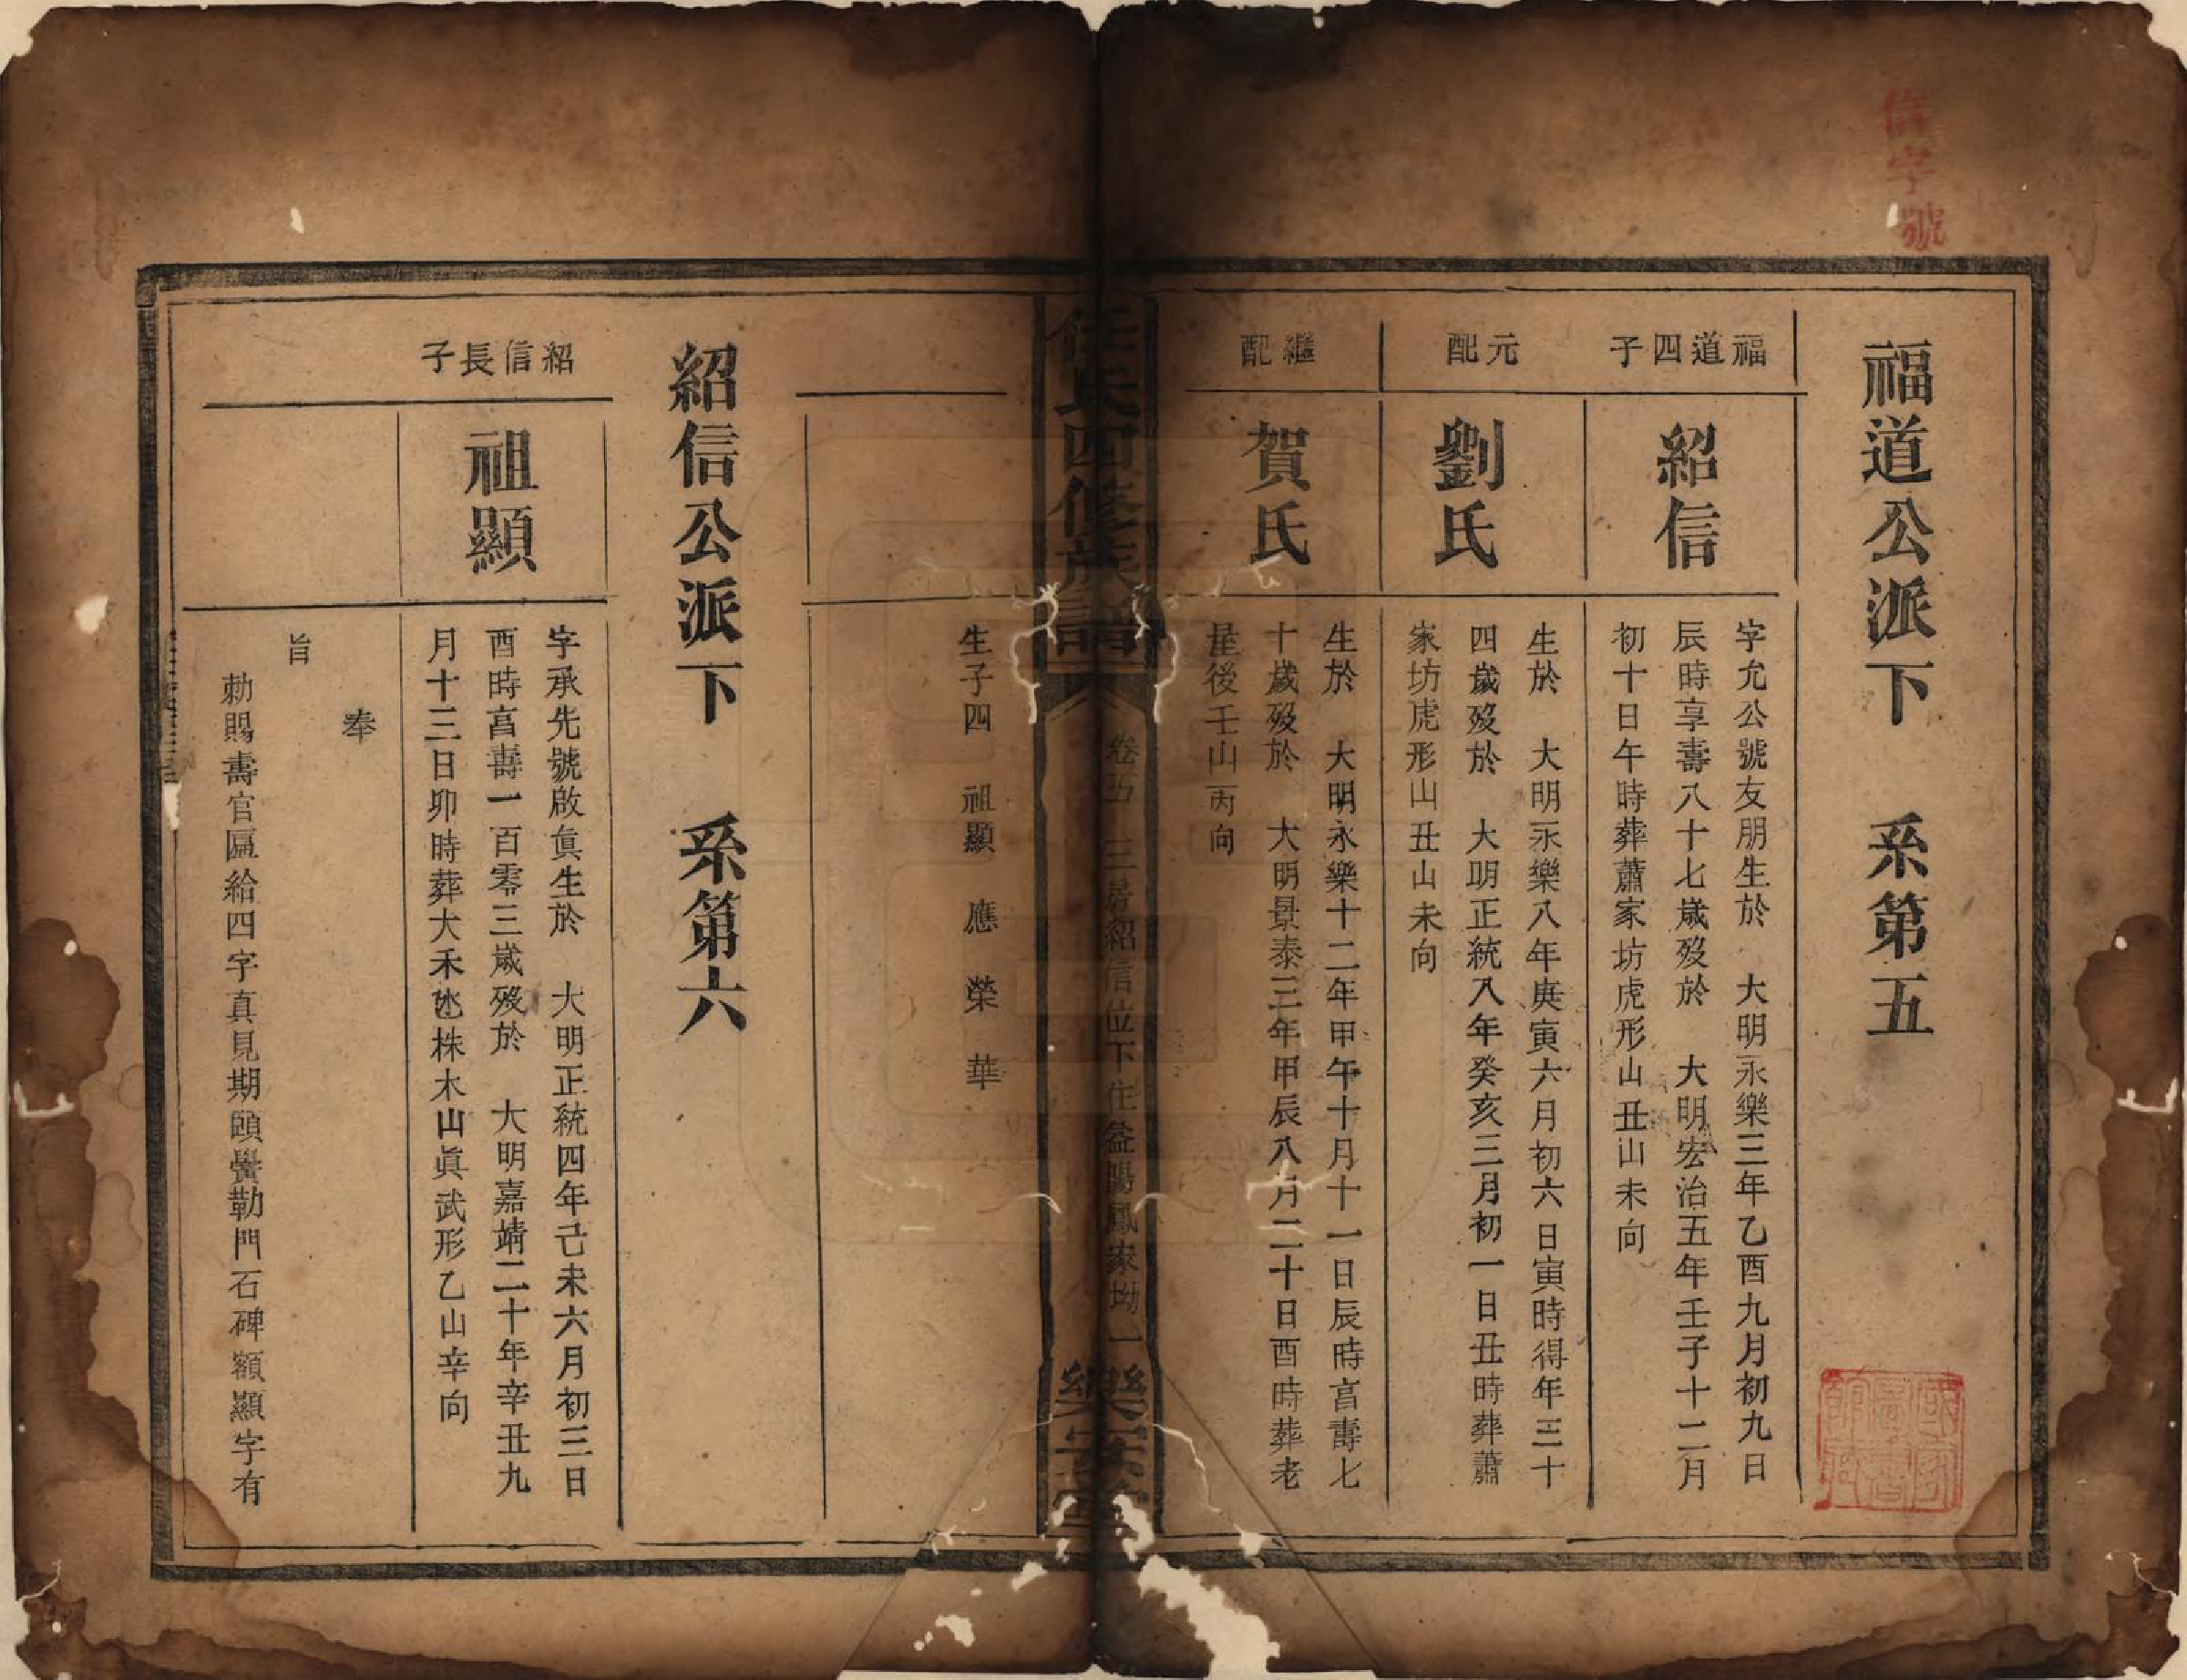 信字號
福道公派下　系第五
福道四子
紹信
字允公號友朋生於　大明永樂三年乙酉九月初九日
辰時享壽八十七歲歿於　大明宏治五年壬子十二月
初十日午時葬蕭家坊虎形山丑山未向
元配
劉氏
生於　大明永樂八年庚寅六月初六日寅時得年三十
四歲歿於　大明正統八年癸亥三月初一日丑時葬蕭
家坊虎形山丑山未向
繼配
賀氏
生於　大明永樂十二年甲午十月十一日辰時亯壽七
十歲歿於　大明景泰三年甲辰八月二十日酉時葬老
屋後壬山丙向
任氏四修族譜
卷五　三房紹信位下住益陽鳳家坳　一
樂安堂
生子四　祖顯　應　榮　華
紹信公派下　系第六
紹信長子
祖顯
字承先號啟眞生於　大明正統四年己未六月初三日
酉時亯壽一百零三歲歿於　大明嘉靖二十年辛丑九
月十三日卯時葬大禾坨株木山眞武形乙山辛向
奉
旨
勅賜壽官匾給四字真見期頤黌勒門石碑額顯字有